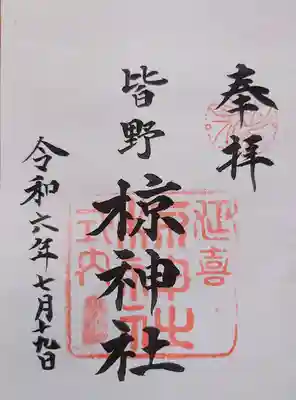 奉拝
皆野
椋神社
延喜
式内
令和六年七月十九日